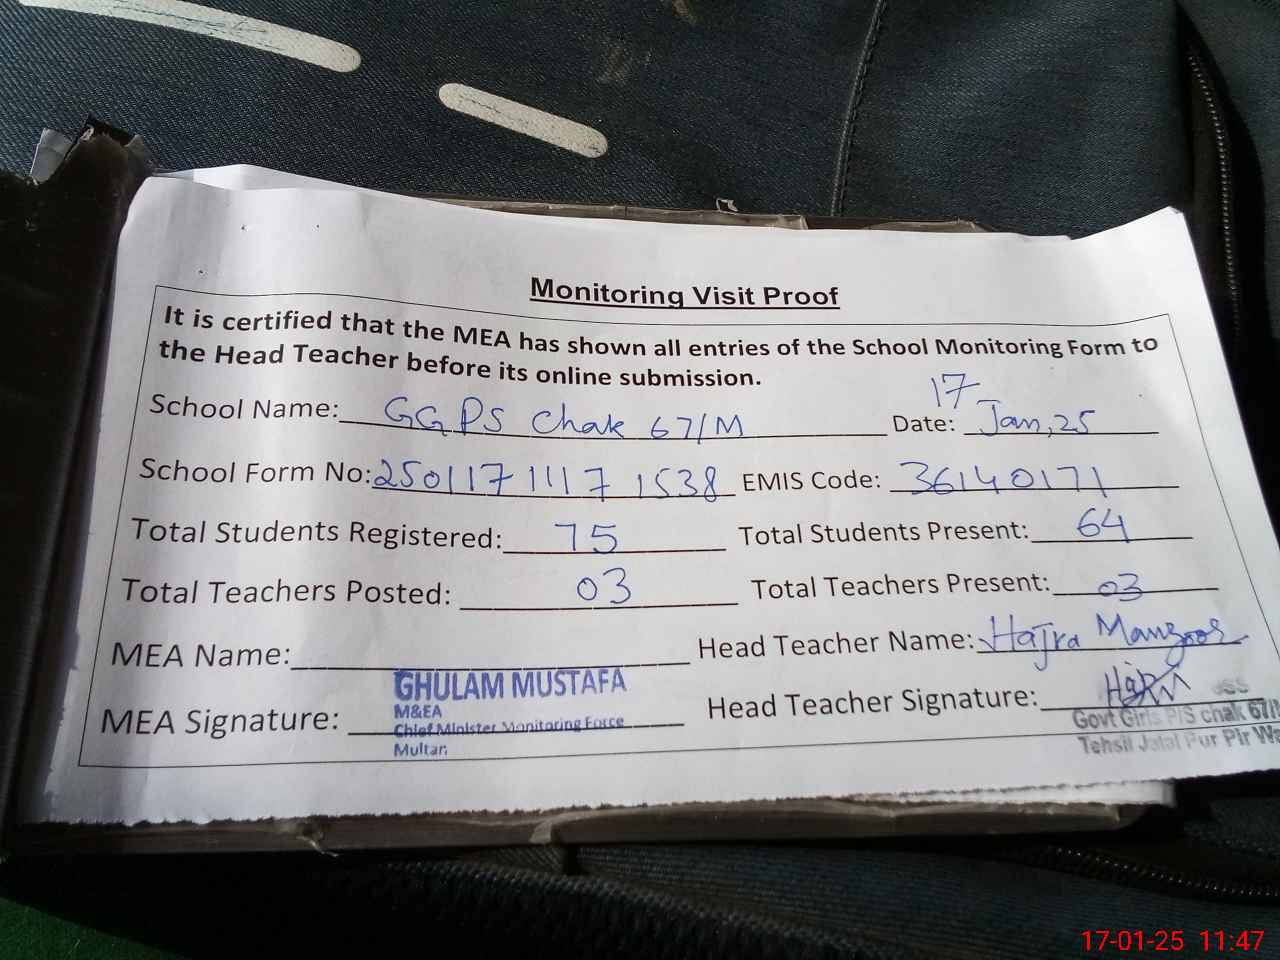 Monitoring Visit Proof
It is certified that the MEA has shown all entries of the School Monitoring Form to
the Head Teacher before its online submission.
School Name: GGPS Chak 67/M Date: 17 Jan,25
School Form No: 250117 1117 1538 EMIS Code: 36140171
Total Students Registered: 75 Total Students Present: 64
Total Teachers Posted: 03 Total Teachers Present: 03
MEA Name: Head Teacher Name: Hajra Manzoor
GHULAM MUSTAFA
M&EA
MEA Signature: Head Teacher Signature:
Chief Minister Monitoring Force
Multan
Govt Girls P/S chak 67/M
Tehsil Jalal Pur Pir Wa
17-01-25 11:47